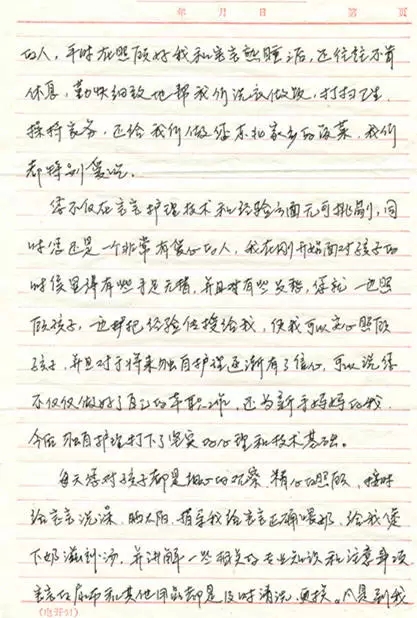 年 月 日 第 页
的人，平时在照顾好我和宝宝熟睡后，还往往不肯
休息，勤快细致地帮我们洗衣做饭，打扫卫生
操持家务，还给我们做您东北家乡的酸菜，我们
都特别爱吃。
您不仅在宝宝护理技术和经验方面无可挑剔，同
时您还是一个非常有爱心的人，我在刚开始面对孩子的
时候显得有些手足无措，并且对有些，您就一边照
顾孩子，一边把经验传授给我，使我可以定心照顾
孩子，并且对于将来独自护理逐渐有了信心，可以说您
不仅仅做好了自己的本职工作，还为新手妈妈的我
今后独自护理打下了坚实的心理和技术基础。
每天您对孩子都是细心的观察，精心的照顾，按时
给宝宝洗澡，晒太阳，指导我给宝宝正确喂奶，给我煲
下奶滋补汤，并讲解一些相关的专业知识和注意事项
宝宝的尿布和其他用品都是及时清洗，更换。凡是到我